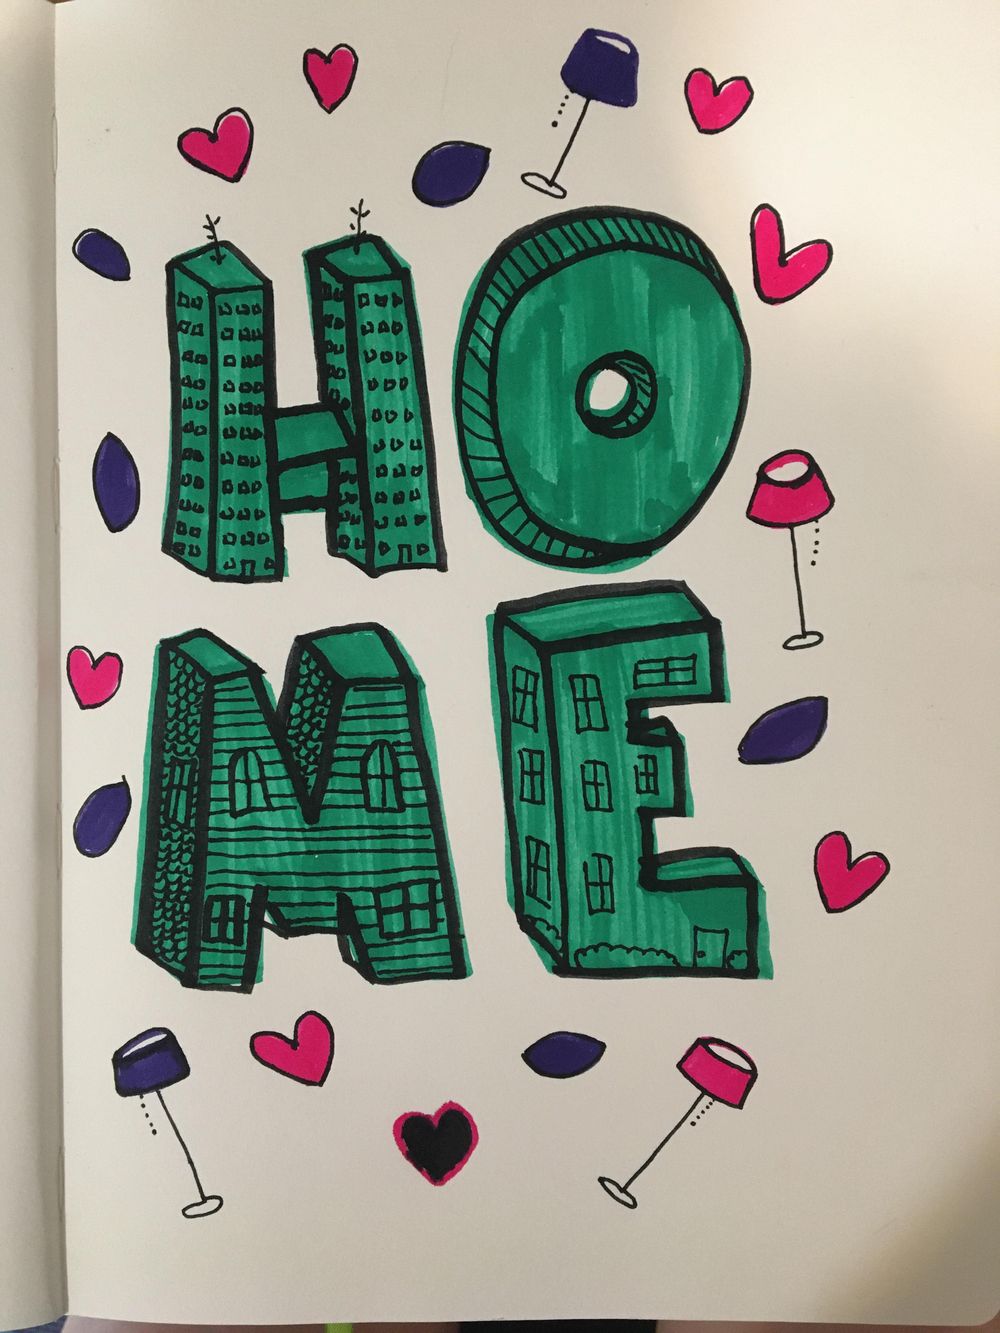 HO
ME